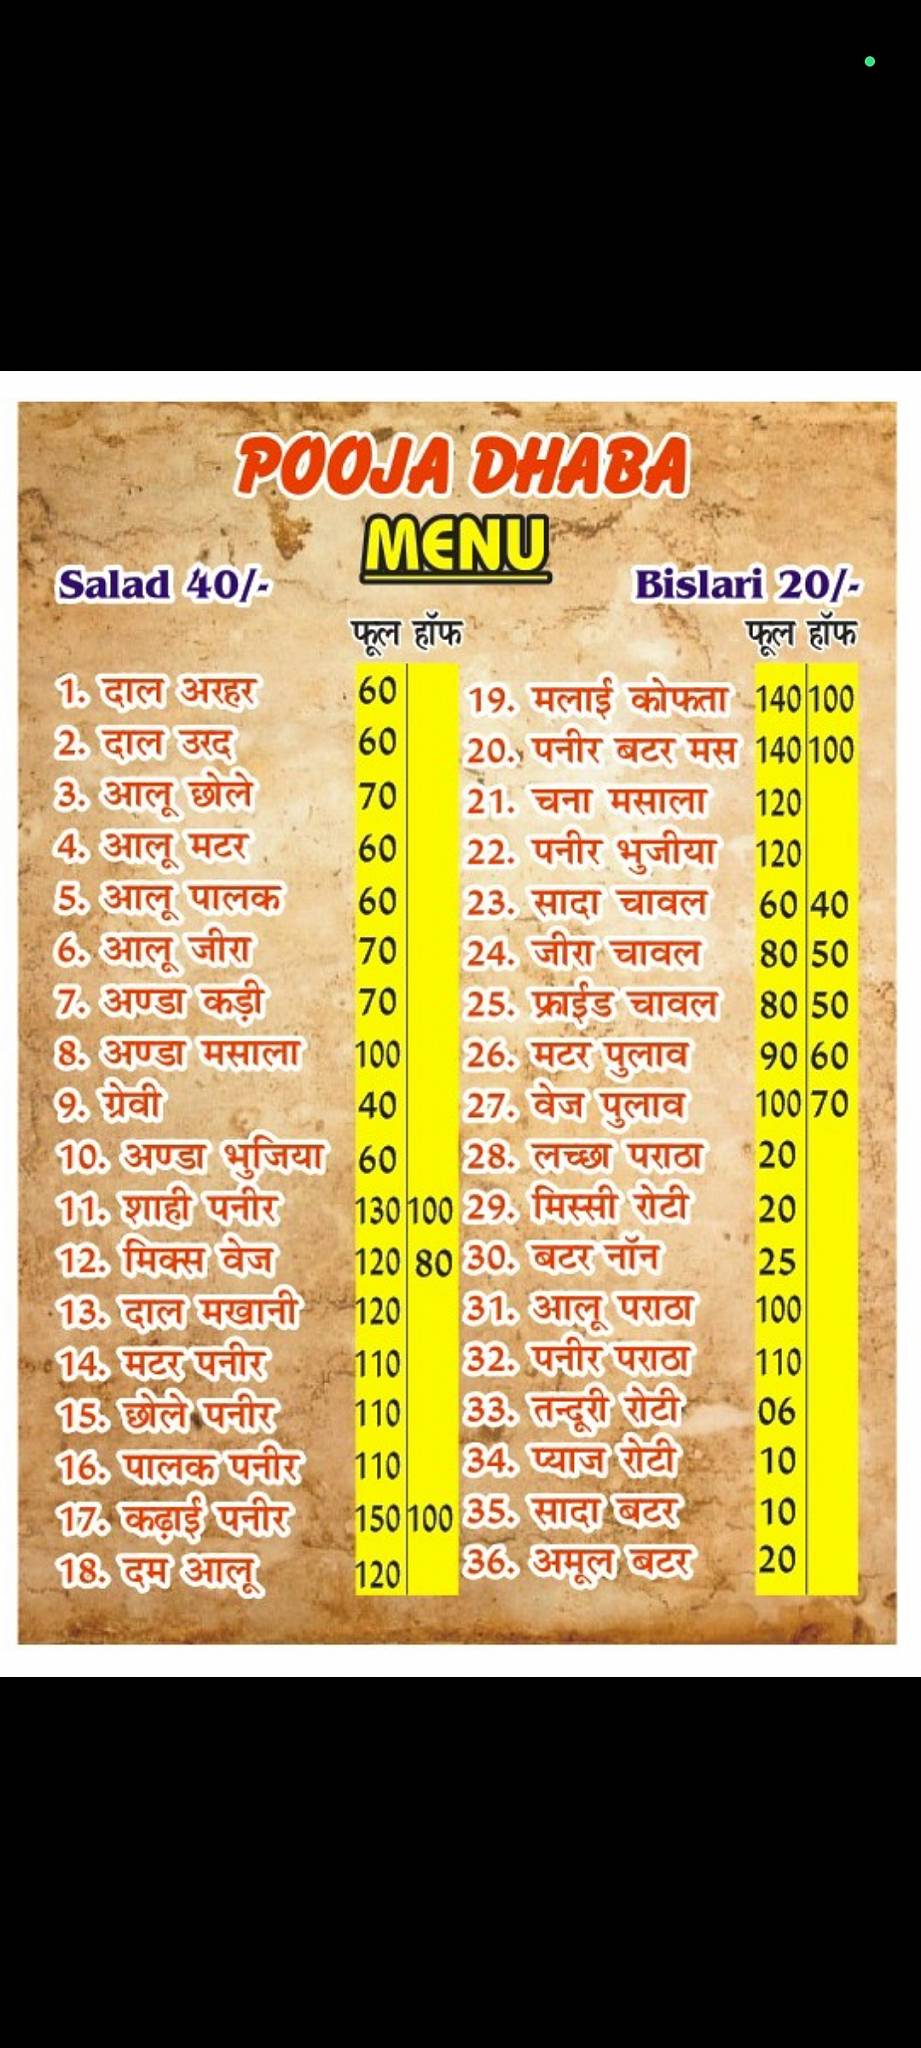 POOJA DHABA
MENU
Salad 40/-
Bislari 20/-
फूल हॉफ
1. दाल अरहर 60
2. दाल उरद 60
3. आलू छोले 70
4. आलू मटर 60
5. आलू पालक 60
6. आलू जीरा 70
7. अण्डा कड़ी 70
8. अण्डा मसाला 100
9. ग्रेवी 40
10. अण्डा भुजिया 60
11. शाही पनीर 130 100
12. मिक्स वेज 120 80
13. दाल मखानी 120
14. मटर पनीर 110
15. छोले पनीर 110
16. पालक पनीर 110
17. कढ़ाई पनीर 150 100
18. दम आलू 120
फूल हॉफ
19. मलाई कोफता 140 100
20. पनीर बटर मस 140 100
21. चना मसाला 120
22. पनीर भुजीया 120
23. सादा चावल 60 40
24. जीरा चावल 80 50
25. फ्राईड चावल 80 50
26. मटर पुलाव 90 60
27. वेज पुलाव 100 70
28. लच्छा पराठा 20
29. मिस्सी रोटी 20
30. बटर नॉन 25
31. आलू पराठा 100
32. पनीर पराठा 110
33. तन्दूरी रोटी 06
34. प्याज रोटी 10
35. सादा बटर 10
36. अमूल बटर 20